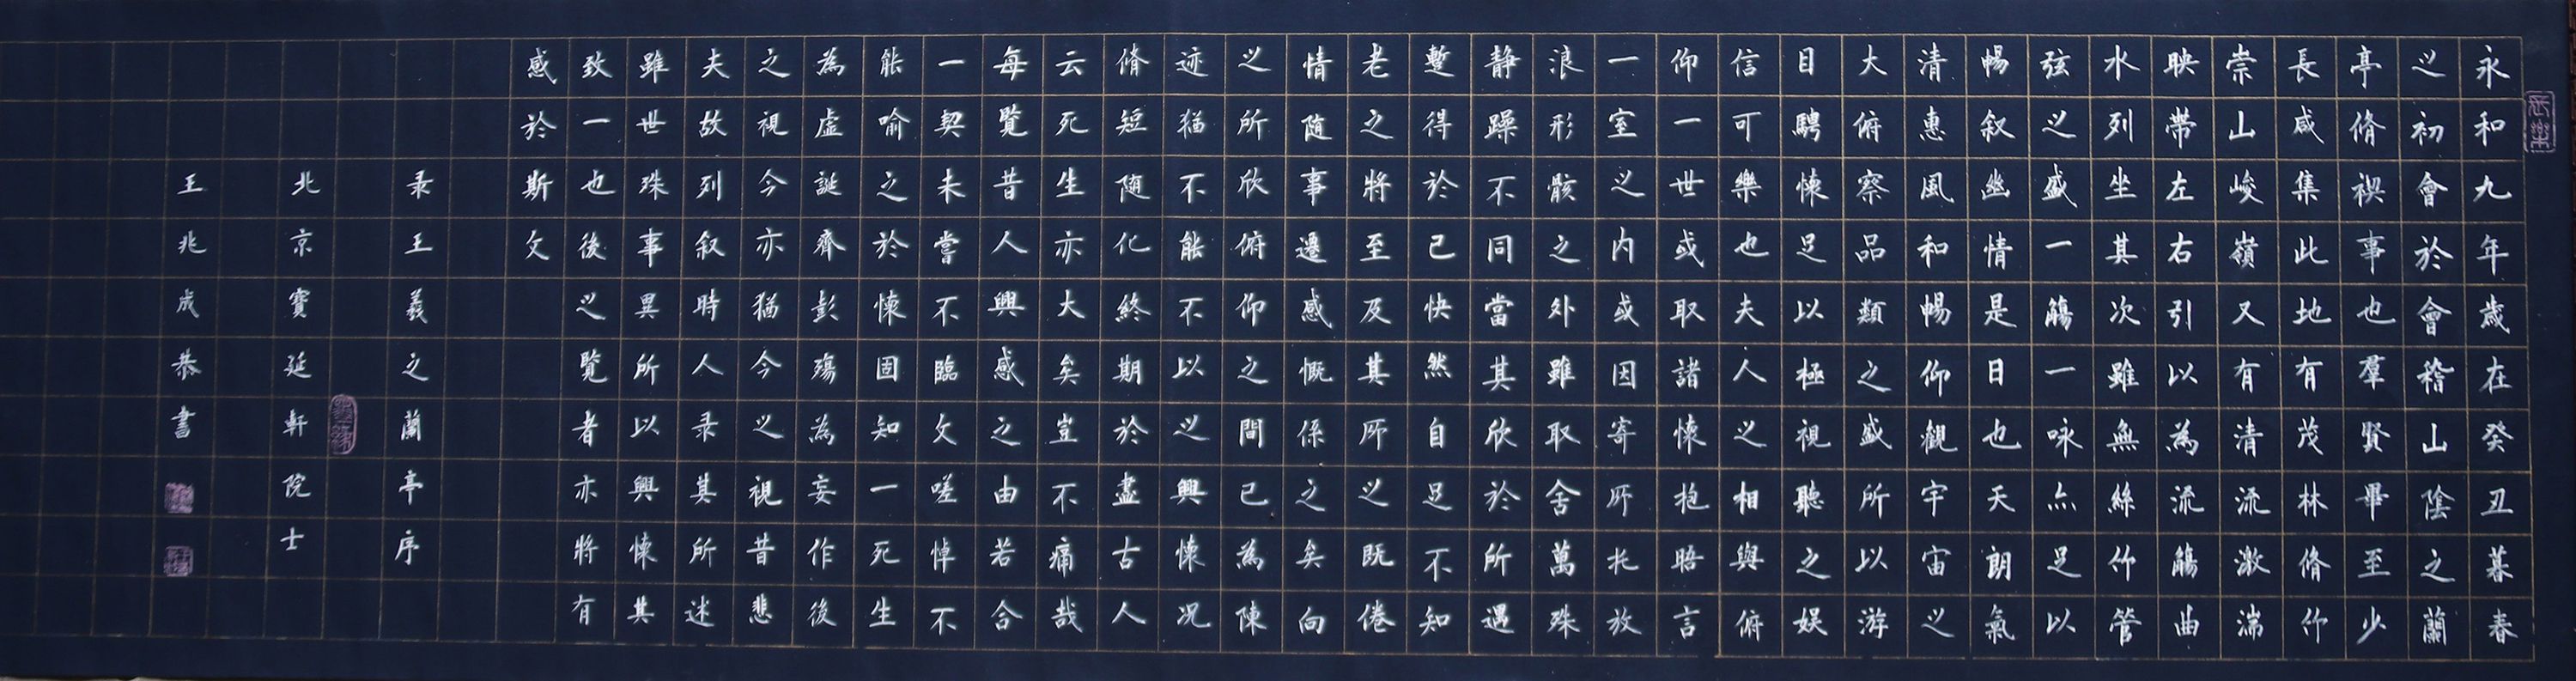 永和九年歲在癸丑暮春
之初會於會稽山陰之蘭
亭脩禊事也羣賢畢至少
長咸集此地有茂林脩竹
崇山峻嶺又有清流激湍
映帶左右引以為流觴曲
水列坐其次雖無絲竹管
弦之盛一觴一咏亦足以
暢叙幽情是日也天朗氣
清惠風和暢仰觀宇宙之
大俯察品類之盛所以游
目騁懷足以極視聽之娛
信可樂也夫人之相與俯
仰一世或取諸懷抱晤言
一室之内或因寄所托放
浪形骸之外雖取舍萬殊
静躁不同當其欣於所遇
暫得於己快然自足不知
老之將至及其所之既倦
情随事遷感慨係之矣向
之所欣俯仰之間已為陳
迹猶不能不以之興懷况
脩短随化終期於盡古人
云死生亦大矣豈不痛哉
每覧昔人興感之由若合
一契未嘗不臨文嗟悼不
能喻之於懷固知一死生
為虛誕齊彭殤為妄作後
之視今亦猶今之視昔悲
夫故列叙時人录其所述
雖世殊事異所以興懷其
致一也後之覧者亦將有
感於斯文
录王羲之蘭亭序
北京寶延軒院士
王兆成恭書